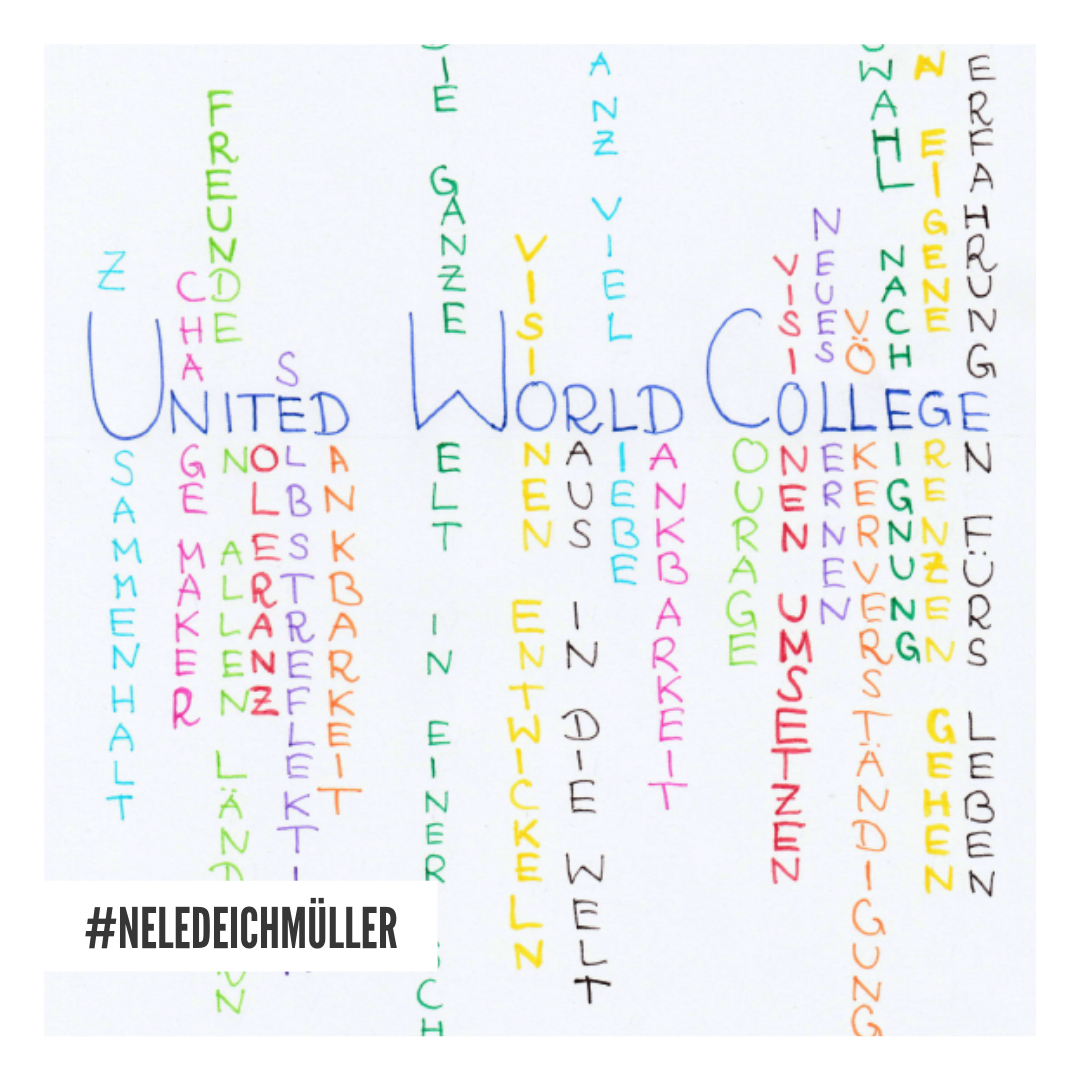 UNITED WORLD COLLEGE
ZUSAMMENHALT
CHANGE MAKER
FREUNDE IN ALLEN
TOLERANZ
SELBSTREFLEKTI
DANKBARKEIT
DIE GANZE WELT IN EINER
VISIONEN ENTWICKELN
RAUS IN DIE WELT
ANZ VIEL LIEBE
DANKBARKEIT
COURAGE
VISIONEN UMSETZEN
NEUES LERNEN
VÖLKERVERSTÄNDIGUNG
WAHL NACH EIGNUNG
N EIGENE GRENZEN GEHEN
ERFAHRUNGEN FÜRS LEBEN
#NELEDEICHMÜLLER